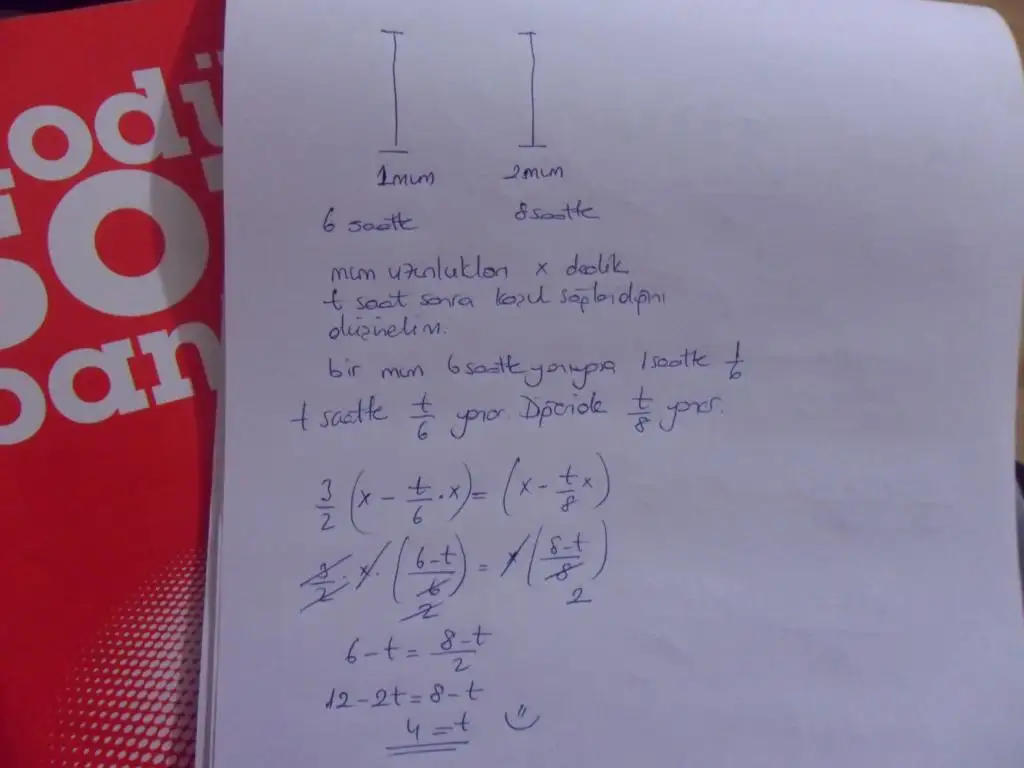 1 mum 2 mum
6 saatte 8 saatte
mum uzunlukları x dedik
t saat sonra
düşünelim.
bir mum 6 saatte yanıyorsa 1 saatte 1/6
t saatte t/6 yanar. Diğeride t/8 yanar.
3/2 (x - t/6 · x) = (x - t/8 x)
3/2 · x · ((6-t)/6) = x ((8-t)/8)
2 2
6-t = (8-t)/2
12-2t = 8-t
4 = t